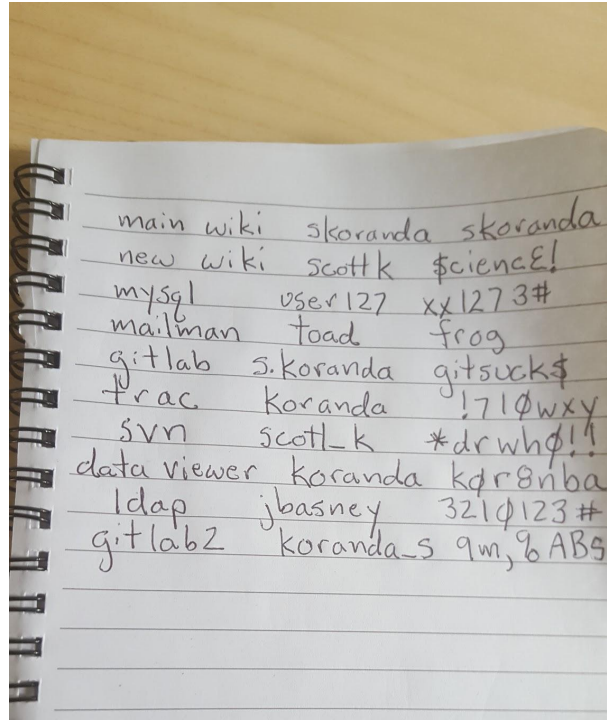 main wiki skoranda skoranda
new wiki scottk $ciencE!
mysql user127 xx1273#
mailman toad frog
gitlab s.koranda gitsuck$
trac koranda !710wxy
svn scott_k *drwh0!!
data viewer koranda k0r8nba
ldap jbasney 3210123#
gitlab2 koranda_s 9m,%ABS